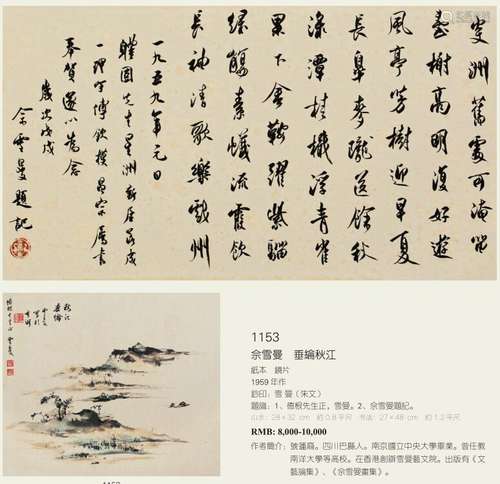 星洲舊處可淹留
臺榭高明復好遊
風亭芳樹迎早夏
長皋麥隴送餘秋
淥潭桂檝浮青雀
果下金鞍躍紫騮
綠觴素蟻流霞飲
長袖清歌樂戲州
一九五九年元日
國先生星洲新居落成
一理宇傅欽模昆宗屬書
奉賀遂以為念
歲次戊戌
佘雪曼題記
秋江
垂綸
1153
佘雪曼 垂綸秋江
紙本 鏡片
1959 年作
鈐印:雪曼(朱文)
題識:1、德根先生正,雪曼。2、佘雪曼題記。
山水:28×32 cm 約 0.8 平尺 书法:27×48 cm 約 1.2 平尺
RMB: 8,000-10,000
作者簡介:號蓮窩。四川巴縣人。南京國立中央大學畢業。曾任教
南洋大學等高校。在香港創辦雪曼藝文院。出版有《文
藝論集》、《佘雪曼畫集》。
1153